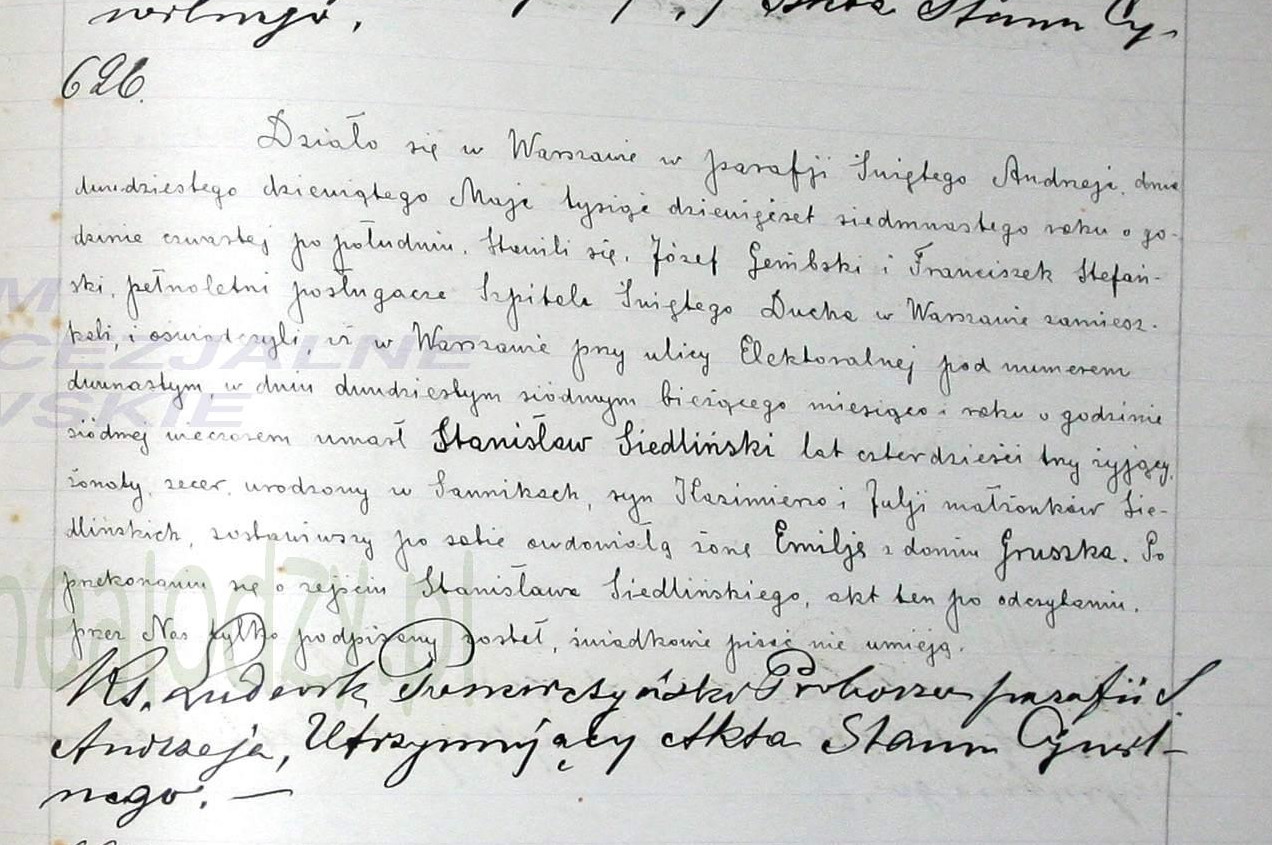 wilnego, Akta Stanu Cy-
626.
Działo się w Warszawie w parafji Świętego Andrzeja, dnia
dwudziestego dziewiątego Maja tysiąc dziewięćset siedmnastego roku o go-
dzinie czwartej po południu. Stawili się, Józef Gembski i Franciszek Stefań-
ski, pełnoletni posługacze Szpitala Świętego Ducha w Warszawie zamiesz-
kali, i oświadczyli, iż w Warszawie przy ulicy Elektoralnej pod numerem
dwunastym, w dniu dwudziestym siódmym bieżącego miesiąca i roku o godzinie
siódmej wieczorem umarł Stanisław Siedliński lat czterdzieści trzy żyjący,
żonaty, zecer, urodzony w Sannikach, syn Kazimierza i Julji małżonków Sie-
dlińskich, zostawiwszy po sobie owdowiałą żonę Emilję z domu Gruszka. Po
przekonaniu się o zejściu Stanisława Siedlińskiego, akt ten po odczytaniu,
przez Nas tylko podpisany został, świadkowie pisać nie umieją.
Ks. Ludwik Proboszcz parafii Ś.
Andrzeja, Utrzymujący Akta Stanu Cywil-
nego. —
M
CEZJALNE
WSKIE
nealodzy.pl